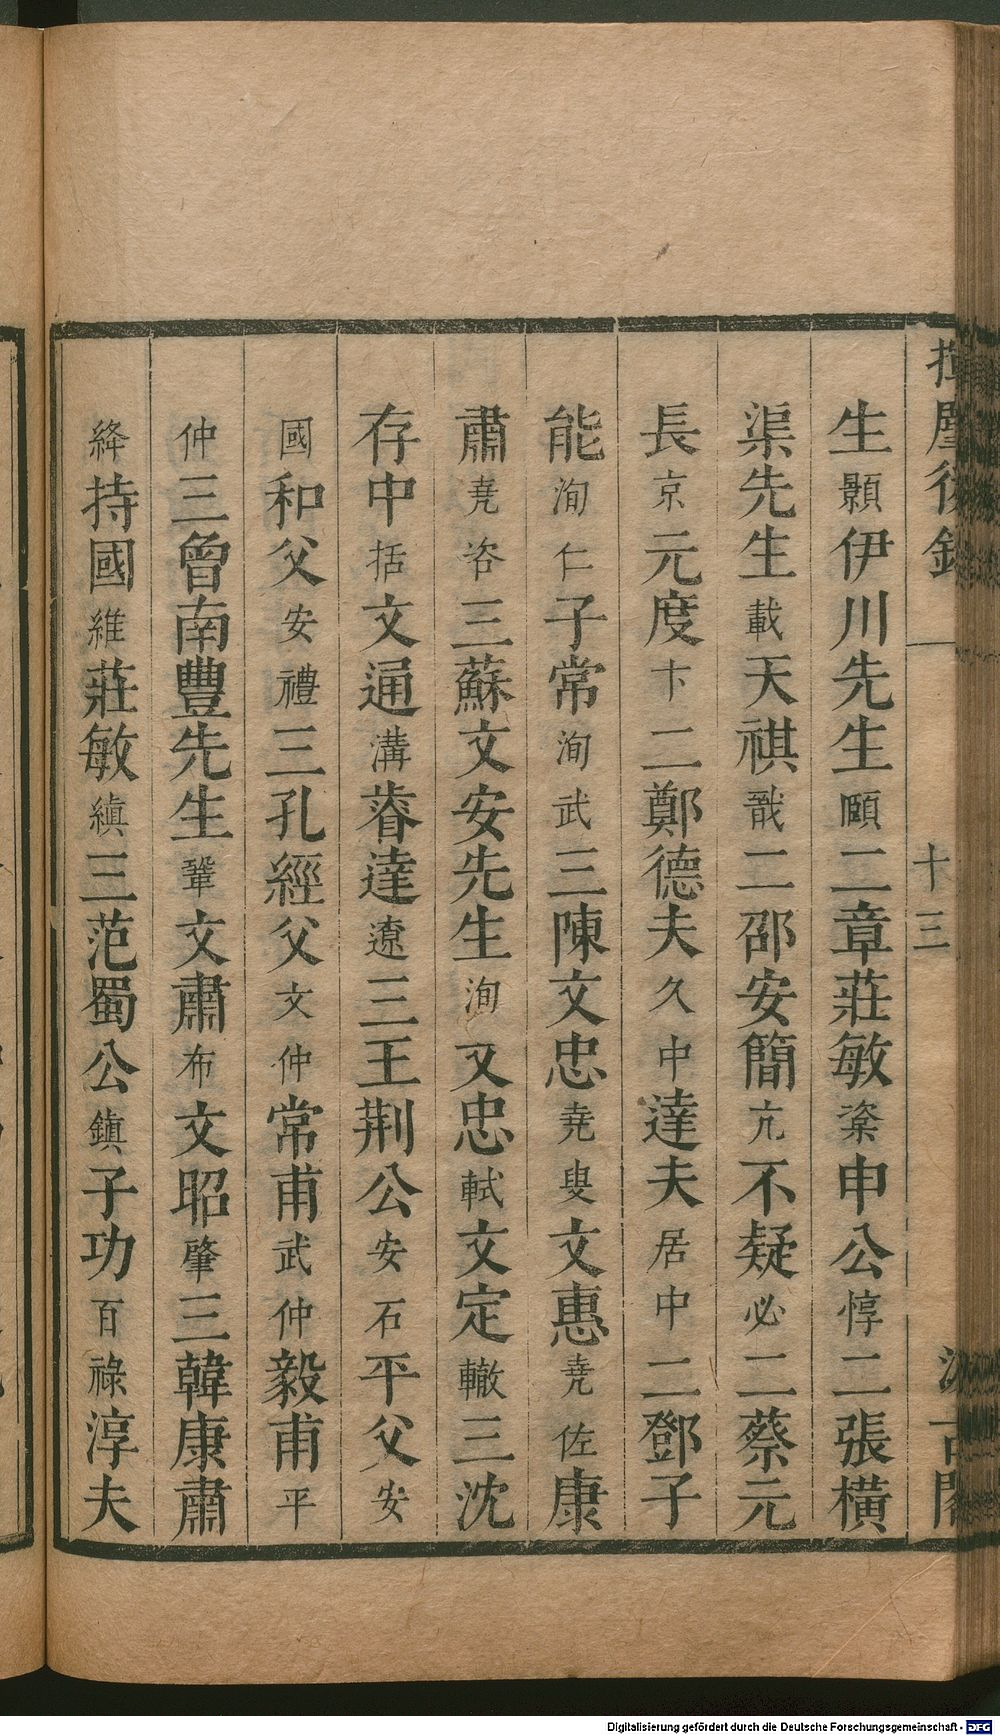 揮麈後錄 十三 汲古閣
生顥伊川先生頤二章莊敏楶申公惇二張橫
渠先生載天祺戩二邵安簡亢不疑必二蔡元
長京元度卞二鄭德夫久中達夫居中二鄧子
能洵仁子常洵武三陳文忠堯叟文惠堯佐康
肅堯咨三蘇文安先生洵文忠軾文定轍三沈
存中括文通溝睿達遼三王荆公安石平父安
國和父安禮三孔經父文仲常甫武仲毅甫平
仲三曾南豐先生鞏文肅布文昭肇三韓康肅
絳持國維莊敏縝三范蜀公鎮子功百祿淳夫
Digitalisierung gefördert durch die Deutsche Forschungsgemeinschaft - DFG